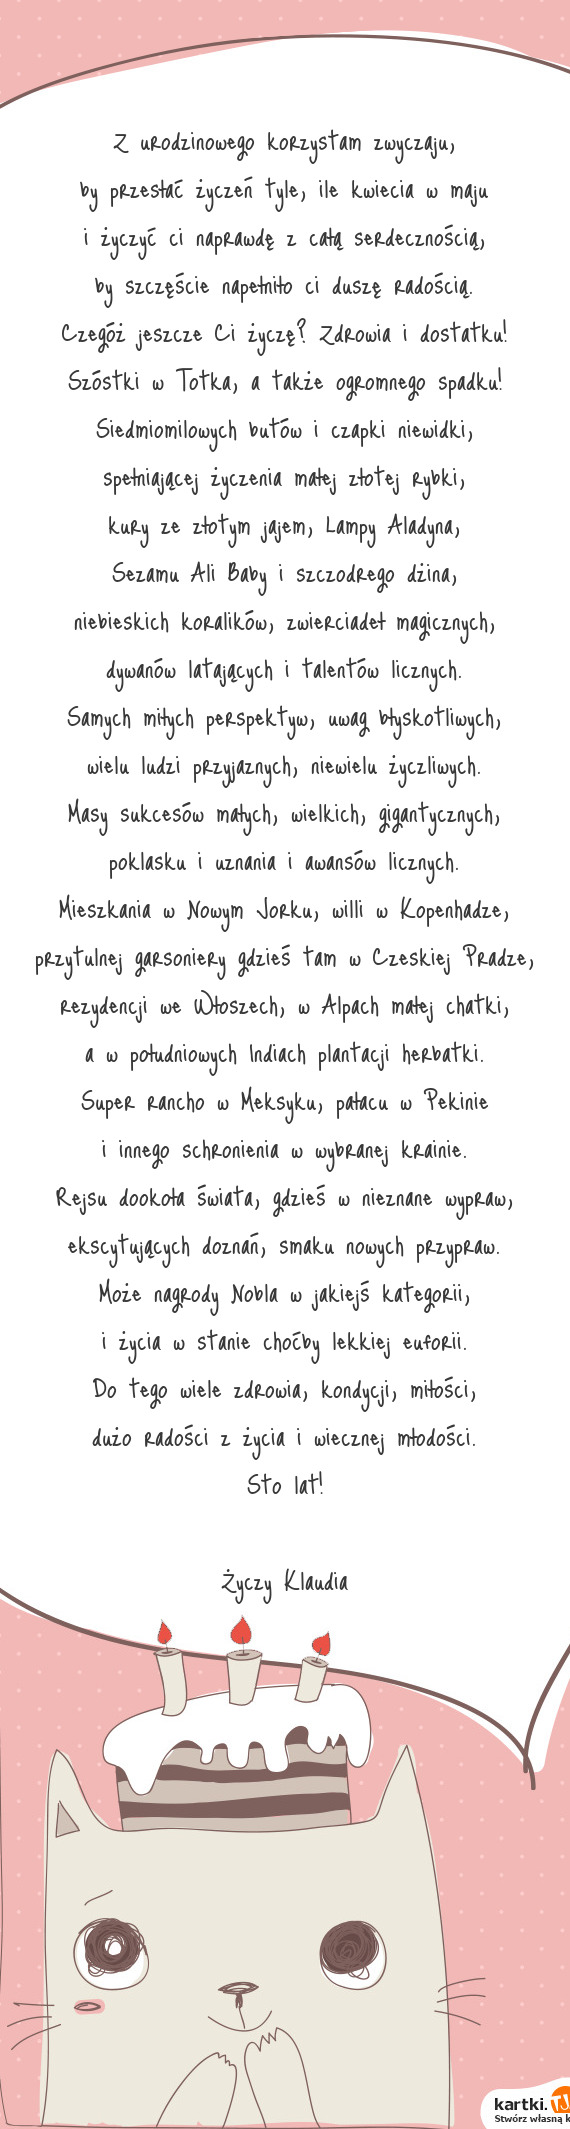 Z urodzinowego korzystam zwyczaju,
by przesłać życzeń tyle, ile kwiecia w maju
i życzyć ci naprawdę z całą serdecznością,
by szczęście napełniło ci duszę radością.
Czegóż jeszcze Ci życzę? Zdrowia i dostatku!
Szóstki w Totka, a także ogromnego spadku!
Siedmiomilowych butów i czapki niewidki,
spełniającej życzenia małej złotej rybki,
kury ze złotym jajem, Lampy Aladyna,
Sezamu Ali Baby i szczodrego dżina,
niebieskich koralików, zwierciadeł magicznych,
dywanów latających i talentów licznych.
Samych miłych perspektyw, uwag błyskotliwych,
wielu ludzi przyjaznych, niewielu życzliwych.
Masy sukcesów małych, wielkich, gigantycznych,
poklasku i uznania i awansów licznych.
Mieszkania w Nowym Jorku, willi w Kopenhadze,
przytulnej garsoniery gdzieś tam w Czeskiej Pradze,
rezydencji we Włoszech, w Alpach małej chatki,
a w południowych Indiach plantacji herbatki.
Super rancho w Meksyku, pałacu w Pekinie
i innego schronienia w wybranej krainie.
Rejsu dookoła świata, gdzieś w nieznane wypraw,
ekscytujących doznań, smaku nowych przypraw.
Może nagrody Nobla w jakiejś kategorii,
i życia w stanie choćby lekkiej euforii.
Do tego wiele zdrowia, kondycji, miłości,
dużo radości z życia i wiecznej młodości.
Sto lat!
Życzy Klaudia
kartki.TJ
Stwórz własną k